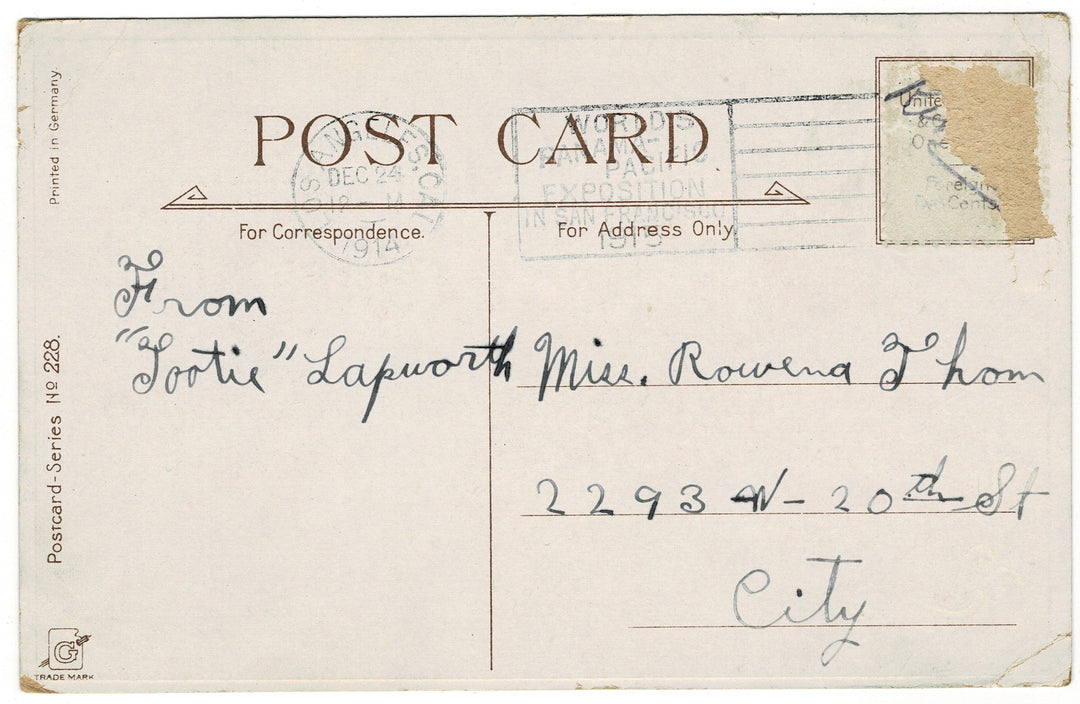 Printed in Germany.
POST CARD
LOS ANGELES, CAL.
DEC 24
12 - M
1914
WORLD'S
PANAMA
PACIFIC
EXPOSITION
IN SAN FRANCISCO
1915
Unite
& 
Foreign
Two Cents.
For Correspondence.
For Address Only.
From
"Tootie" Lapworth
Miss. Rowena Thom
2293 W- 20th St
City
Postcard-Series No 228.
G
TRADE MARK